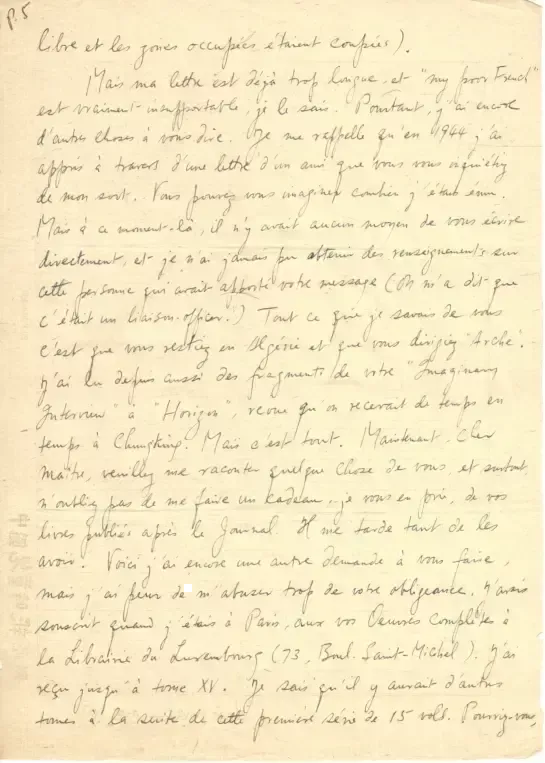 P. 5
libre et les zones occupées étaient coupées).
Mais ma lettre est déjà trop longue, et "my poor French"
est vraiment insupportable, je le sais. Pourtant, j'ai encore
d'autres choses à vous dire. Je me rappelle qu'en 1944 j'ai
appris à travers d'une lettre d'un ami que vous vous inquiétiez
de mon sort. Vous pouvez vous imaginer combien j'étais ému.
Mais à ce moment-là, il n'y avait aucun moyen de vous écrire
directement, et je n'ai jamais pu obtenir des renseignements sur
cette personne qui avait apporté votre message (On m'a dit que
c'était un liaison-officer!) Tout ce que je savais de vous
c'est que vous restiez en Algérie et que vous dirigiez "Arche".
J'ai lu depuis aussi des fragments de votre "Imaginary
Interview" à "Horizon", revue qu'on recevait de temps en
temps à Chungking. Mais c'est tout. Maintenant, cher
Maître, veuillez me raconter quelque chose de vous, et surtout,
n'oubliez pas de me faire un cadeau, je vous en prie, de vos
livres publiés après le Journal. Il me tarde tant de les
avoir. Voici j'ai encore une autre demande à vous faire,
mais j'ai peur de m'abuser trop de votre obligeance. J'avais
souscrit quand j'étais à Paris, aux vos Oeuvres complètes à
la Librairie du Luxembourg (73, Boul. Saint-Michel). J'ai
reçu jusqu'à tome XV. Je sais qu'il y aurait d'autres
tomes à la suite de cette première série de 15 voll. Pourriez-vous,